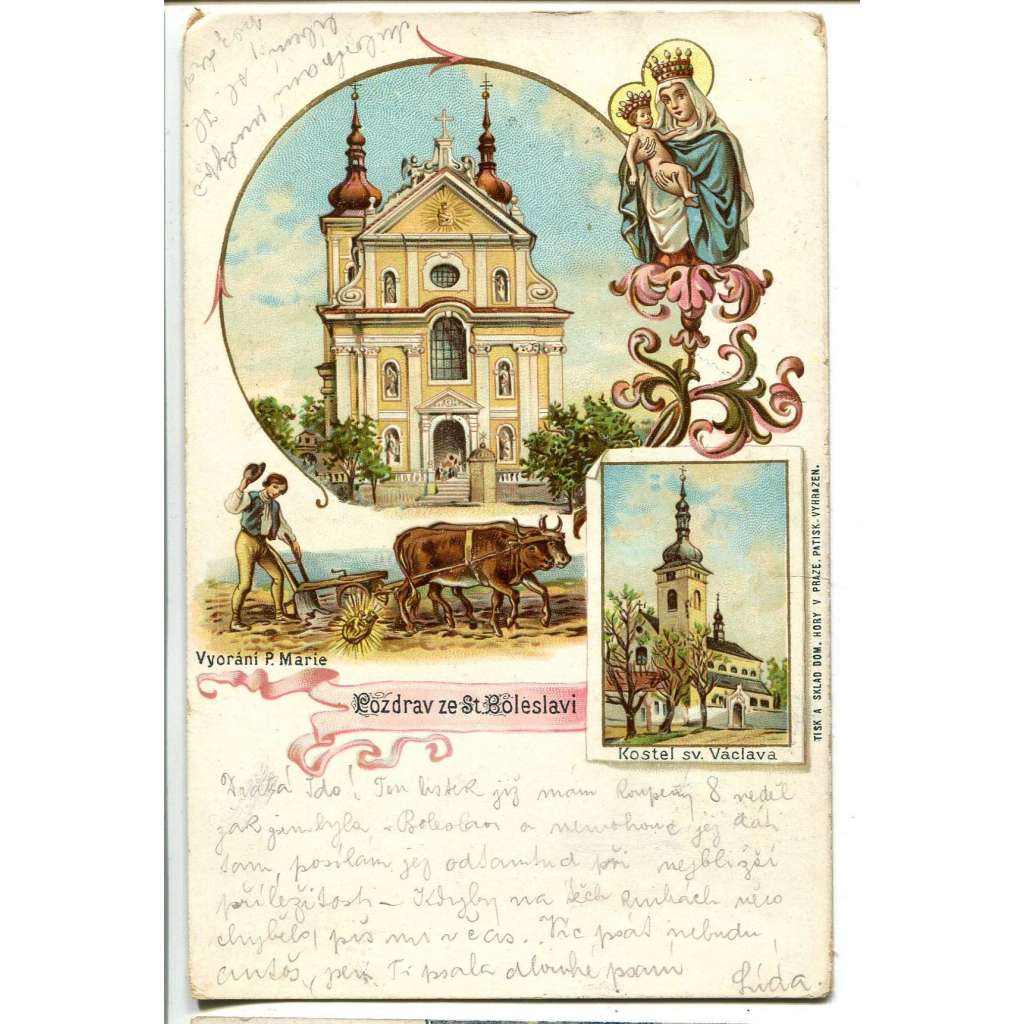 Vyorání P. Marie
Pozdrav ze St. Boleslavi
Kostel sv. Václava
TISK A SKLAD DOM. HORY V PRAZE. PATISK VYHRAZEN.
Drahá Ido! Ten lístek již mám koupený 8 neděl
byla v Boleslavi a nemohouc jej dáti
tam, posílám jej odtamtud při nejbližší
příležitosti – Kdyby na těch něco
chybělo, piš mi v čas.. Víc psát nebudu,
Ti psala dlouhé psaní
Lída.